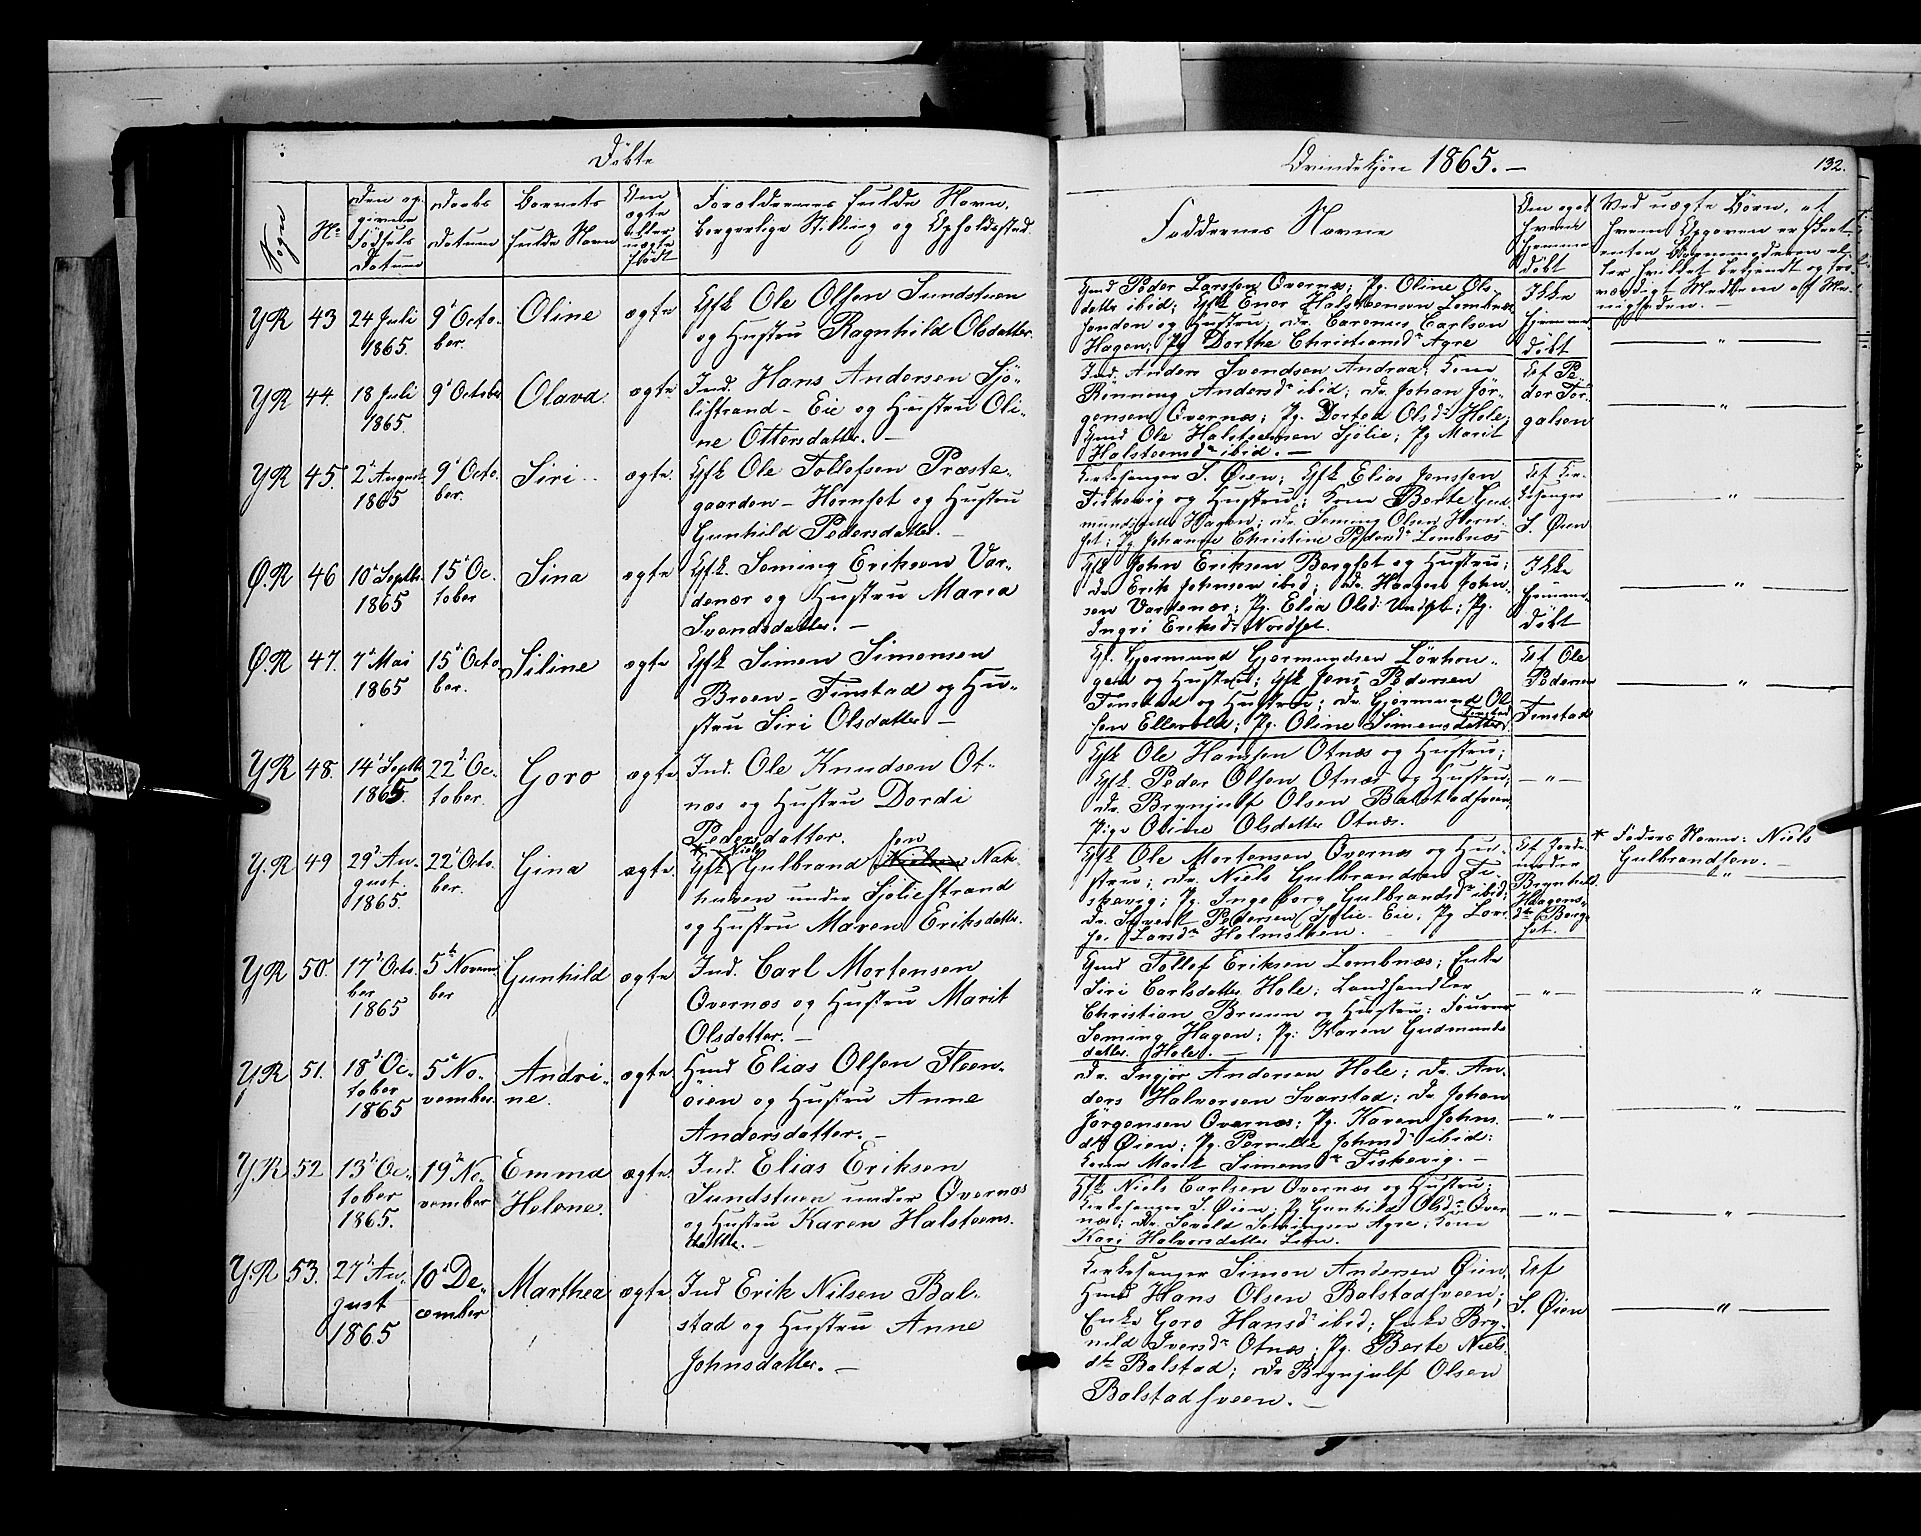 Døbte
Qvindekjøn 1865. —
132.
Sogn
No
Den op-
givne
Fødsels
Datum
Daabs
Datum
Barnets
fulde Navn
Om
ægte
eller
uægte
født
Forældrenes fulde Navn,
borgerlige Stilling og Opholdssted
Faddernes Navne
Om og af
hvem
hjemme
døbt
Ved uægte Børn, af
hvem Opgaven er skeet
enten
YR 43 24 Juli
1865.
9de Octo-
ber.
Oline
ægte
Gfk Ole Olsen Sundstuen
og Hustru Ragnhild Olsdatter.
Gmd Peder Larsen Overnæs; Pg. Oline Ols-
datter ibid; Gfk Enor Halstensen Lombnæs-
Hagen; Pg Dorthe Christiansdr Agre
Ikke
hjemme-
døbt
— " —
YR 44. 18 Juli
1865.
9de October
Olava.
ægte
Ind. Hans Andersen Sjø-
listrand - Eie og Hustru Oli-
ne Ottersdatter. —
Ind. Anders Svendsen Andraa; Kone
Rønnoug Andersdr ibid; Dr. Johan Jør-
gensen Overnæs; Pg. Dorthea Olsdr Hole;
Gmd Ole Halstensen Sjølie; Pg Marit
Halstensdr ibid. —
Af Pe-
der Tor-
galsen
— " —
YR 45. 2de August
1865
9de Octo-
ber.
Siri
ægte.
Gfk Ole Tollefsen Præste-
gaarden - Hornset og Hustru
Gunhild Pedersdatter. —
Kirkesanger S. Øien; Gfk Elias Jensen
Fiskevig og Hustru; Kone Berte Gud-
mundsdatter Hagen; Dr. Seming Olsen Horn-
set; Pg Johanne Christine Pedersdr Lombnæs
Af Kir-
kesanger
S. Øien
— " —
Ø.R 46 10de Septb.
1865
15de Oc-
tober
Sina
ægte
Gfk. Seming Eriksen Var-
denær og Hustru Maria
Svendsdatter. —
Gfk John Eriksen Bergset og Hustru;
Dr Erik Johnsen ibid; Dr. Haagen John-
sen Vardenær; Pg. Elia Olsd. Undset; Pg.
Ingri Eriksdr Nordset.
Ikke
hjemme-
døbt
— " —
Ø.R 47. 7de Mai
1865
15de Octo-
ber.
Siline
ægte
Gfk Simen Simensen
Broen - Finstad og Hu-
stru Siri Olsdatter —
Gf. Gjermund Gjermundsen Løvhou-
gen og Hustru; Gfk Jens Pedersen
Finstad og Hustru; Dr. Gjermund Ol-
sen Ellevold; Pg. Oline Simensdatter Finstad
Af Ole
Pedersen
Finstad
— " —
YR 48. 14de Septb.
1865.
22de Oc-
tober.
Goro
ægte
Ind. Ole Knudsen Ot-
næs og Hustru Dordi
Pedersdatter.
Gfk Ole Hansen Otnæs og Hustru;
Gfk Peder Olsen Otnæs og Hustru;
Dr. Brynjulf Olsen Balstadsveen,
Pige Oline Olsdatter Otnæs.
— " —
Y.R 49 29de Au-
gust.
1865.
22de Octo-
ber.
Gina
ægte.
* Gfk Niels Gulbrandsen Nielsen Nak-
huven under Sjøliestrand
og Hustru Maren Eriksdatter.
Gfk Ole Mortensen Overnæs og Hu-
stru; Dr. Niels Gulbrandsen Fi-
skevig; Pg. Ingeborg Gulbrandsdr ibid;
Dr. Syvert Pedersen Sjølie-Eie; Pg Lovi-
se Larsdr Holmsteen. —
Af Jorde-
moder
Brynhild
Haagens-
dtr Berg-
set.
* Faders Navn: Niels
Gulbrandsen. —
— " —
YR 50. 17de Octo-
ber
1865
5te Novem-
ber
Gunhild
ægte.
Ind. Carl Mortensen
Overnæs og Hustru Marit
Olsdatter. —
Gmd Tollef Eriksen Lombnæs; Enke
Siri Carlsdatter Hole; Landhandler
Christian Bruun og Hustru; Fourer
Seming Hagen; Pg. Karen Gudmunds-
datter Hole. —
— " —
— " —
YR 51. 18de Oc-
tober
1865
5te No-
vember.
Andri-
ne.
ægte
Gmd Elias Olsen Steen-
øien og Hustru Anne
Andersdatter. —
Dr. Ingjør Andersen Hole; Dr. An-
ders Halvorsen Svarstad; Dr Johan
Jørgensen Overnæs; Pg. Karen Johns-
dtr Øien; Pg. Pernille Johnsdr ibid;
Kone Marit Simensdr Fiskevig. —
— " —
— " —
YR 52 13de Oc-
tober
1865.
19de No-
vember
Emma
Helene.
ægte.
Ind. Elias Eriksen
Sundstuen under Overnæs
og Hustru Karen Halsteens-
datter. —
Gfk Niels Carlsen Overnæs og Hustru;
Kirkesanger S. Øien; Pg Gunhild Olsdr Over-
næs; Dr. Semingsen Agre; Kone
Kari Halvorsdatter Lien.
— " —
— " —
Y.R 53. 27de Au-
gust
1865
10de De-
cember
Marthea
ægte.
Ind Erik Nilsen Bal-
stad og Hustru Anne
Johnsdatter. —
Kirkesanger Simon Andersen Øien,
Gmd Hans Olsen Balstadsveen;
Enke Goro Hansdr ibid; Enke Bry-
nild Iversdr Otnæs; Pg. Berte Niels-
dtr Balstad; Dr Brynjulf Olsen
Balstadsveen. —
Af
S. Øien
— " —